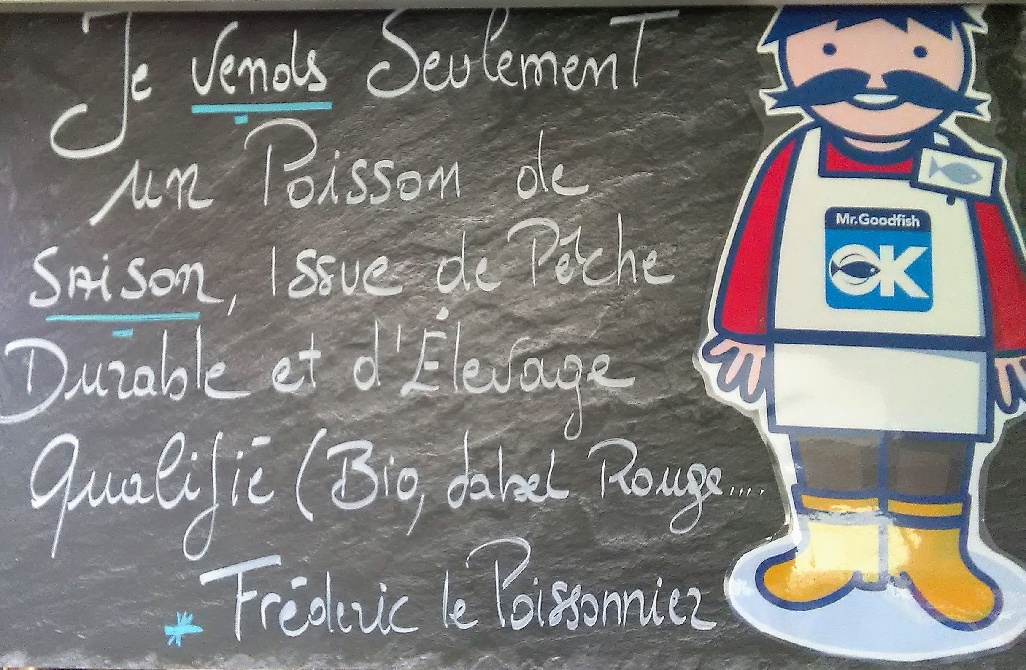 Je vends Seulement
un Poisson de
Saison, Issue de Pêche
Durable et d'Élevage
Qualifié (Bio, Label Rouge....
* Fréderic le Poissonnier
Mr.Goodfish
OK